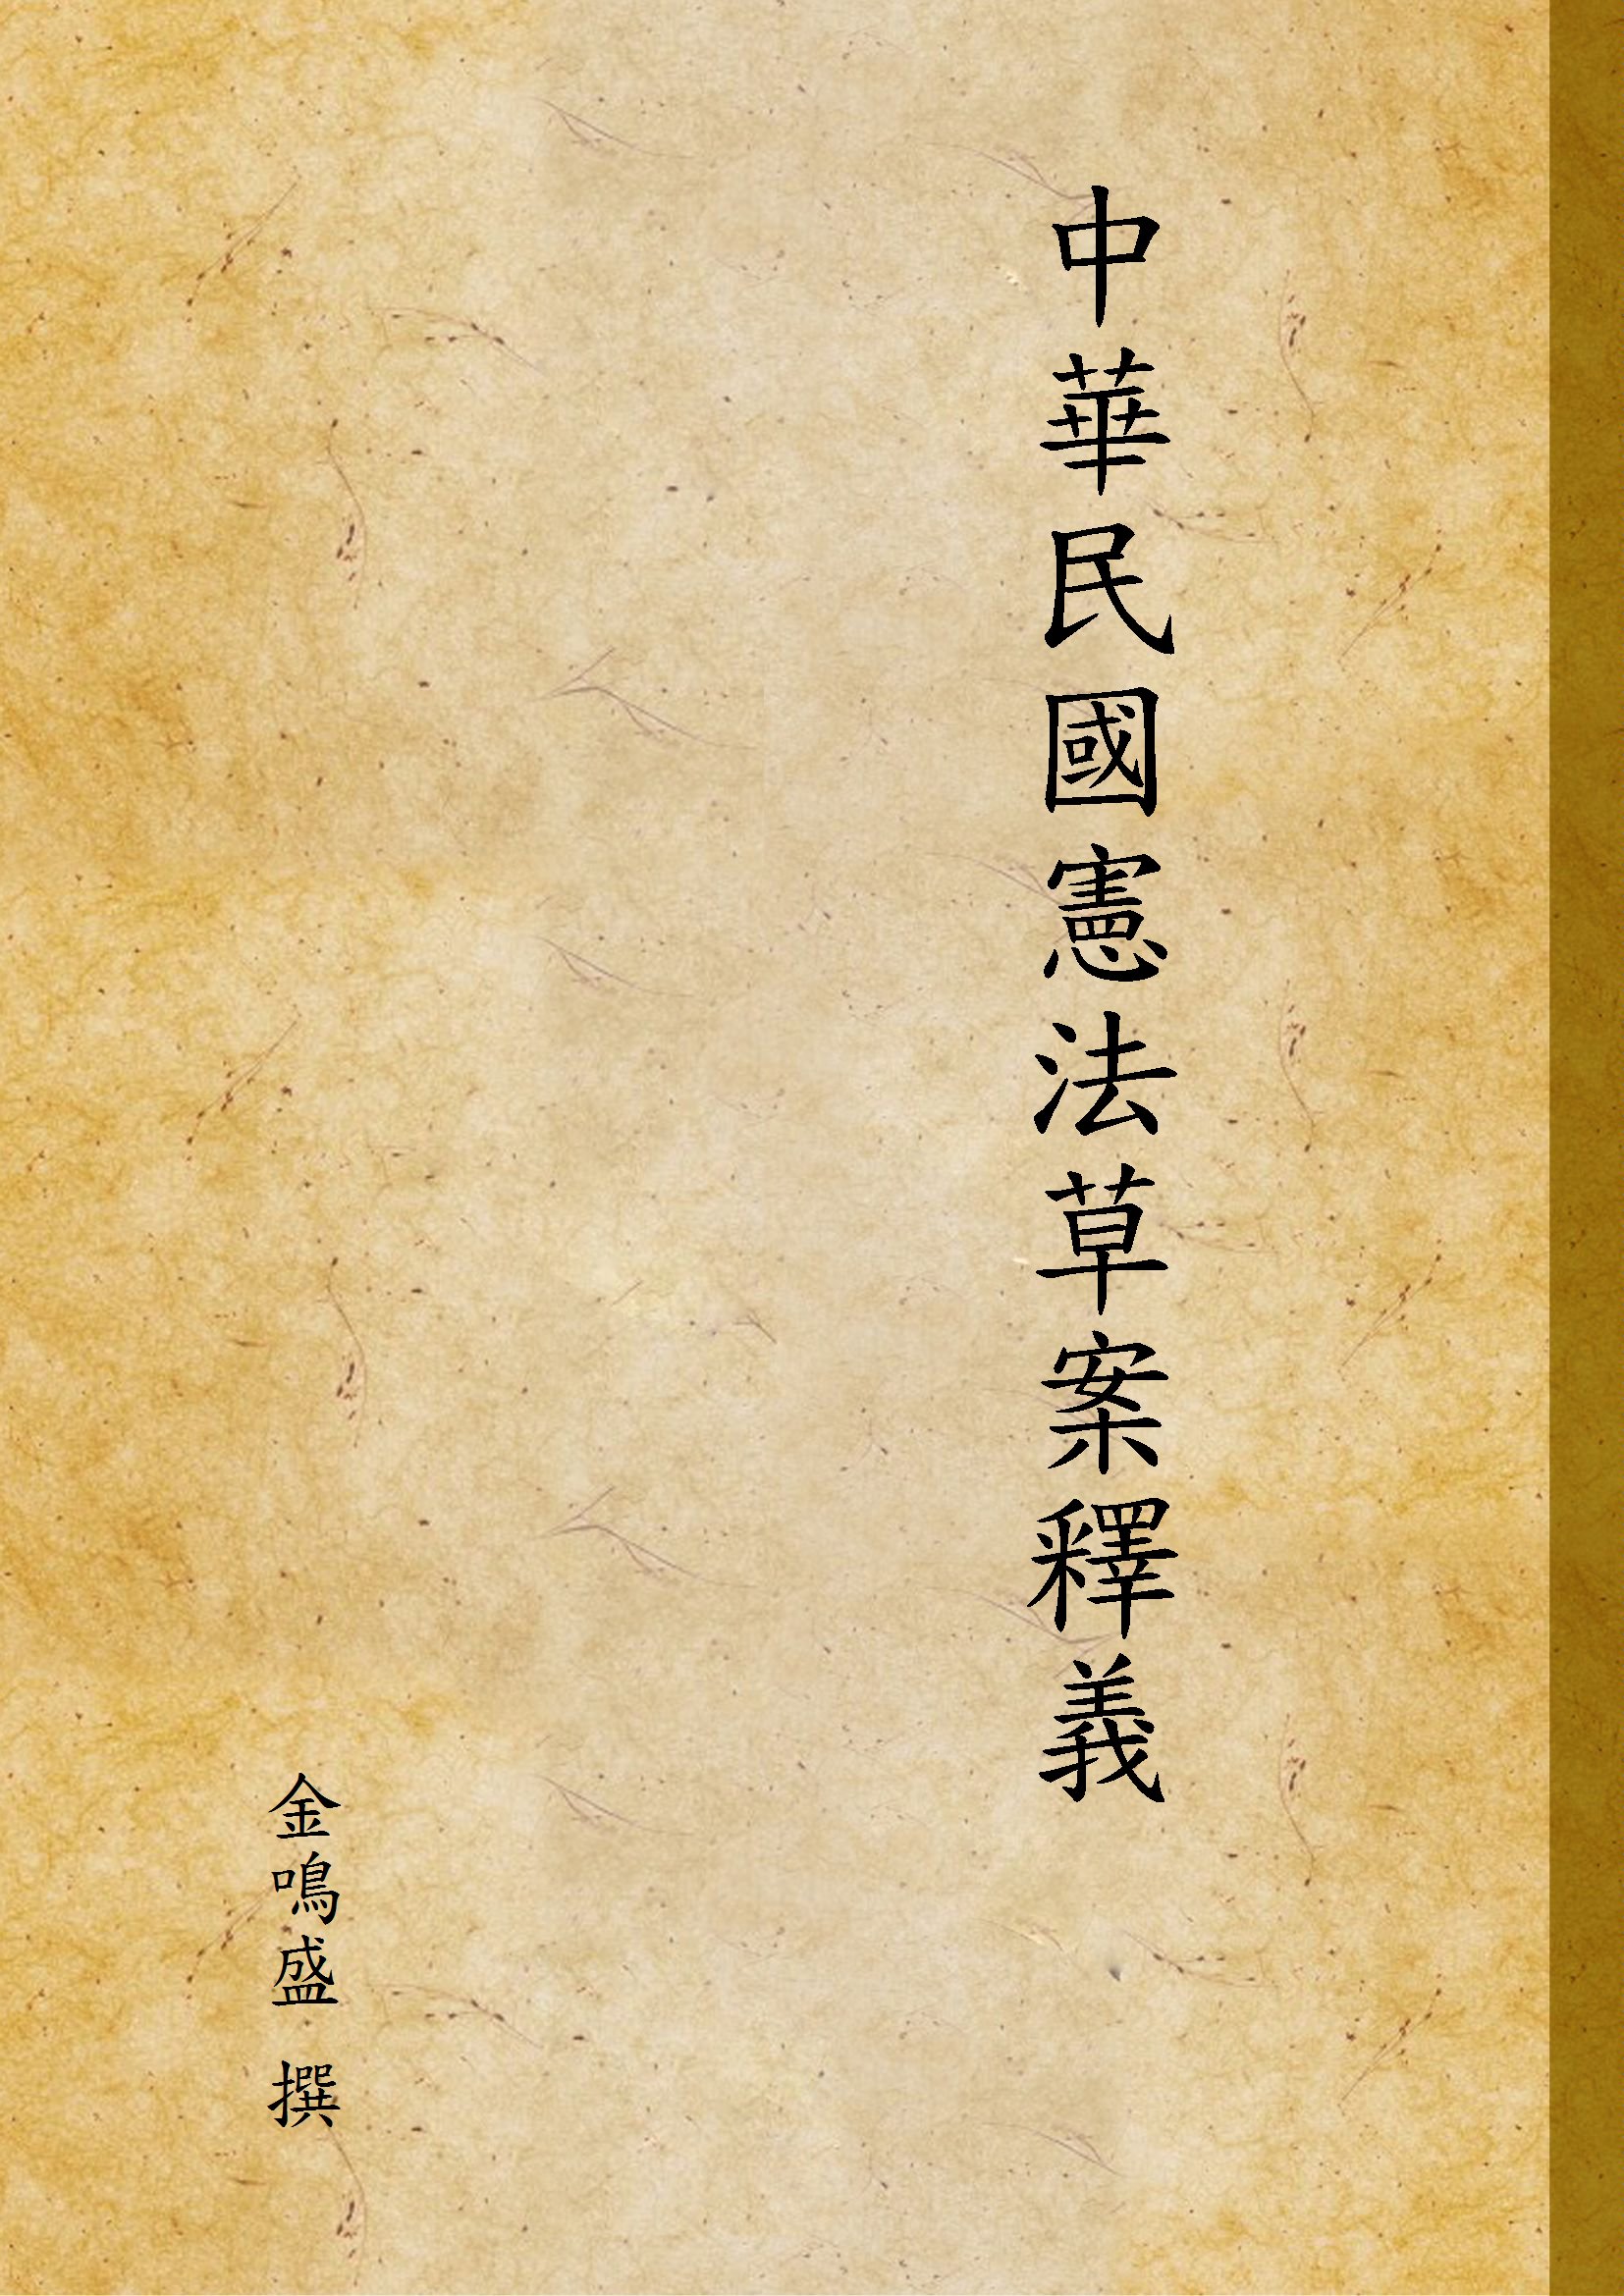 中華民國憲法草案釋義
金鳴盛 撰